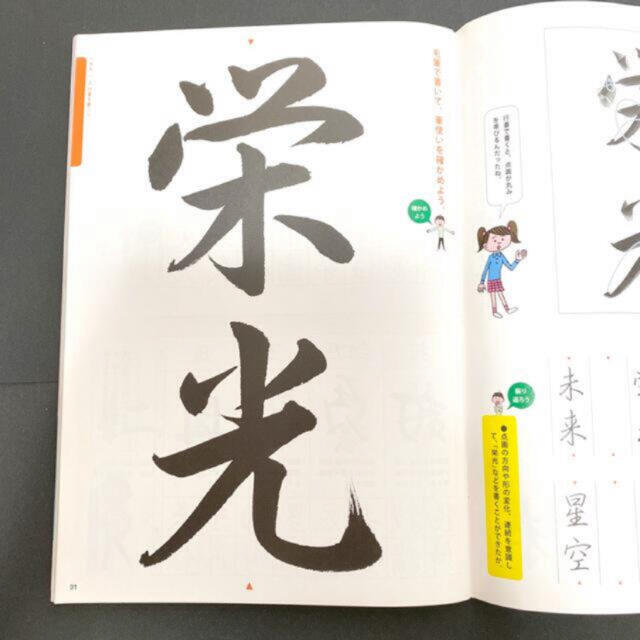 栄光
毛筆で書いて、筆使いを確かめよう。
確かめ
よう
31
行書で書くと、点画が丸み
を帯びるんだったね。
振り
返ろう
●点画の方向や形の変化、連続を意識し
て、「栄光」などを書くことができたか。
未来
星空